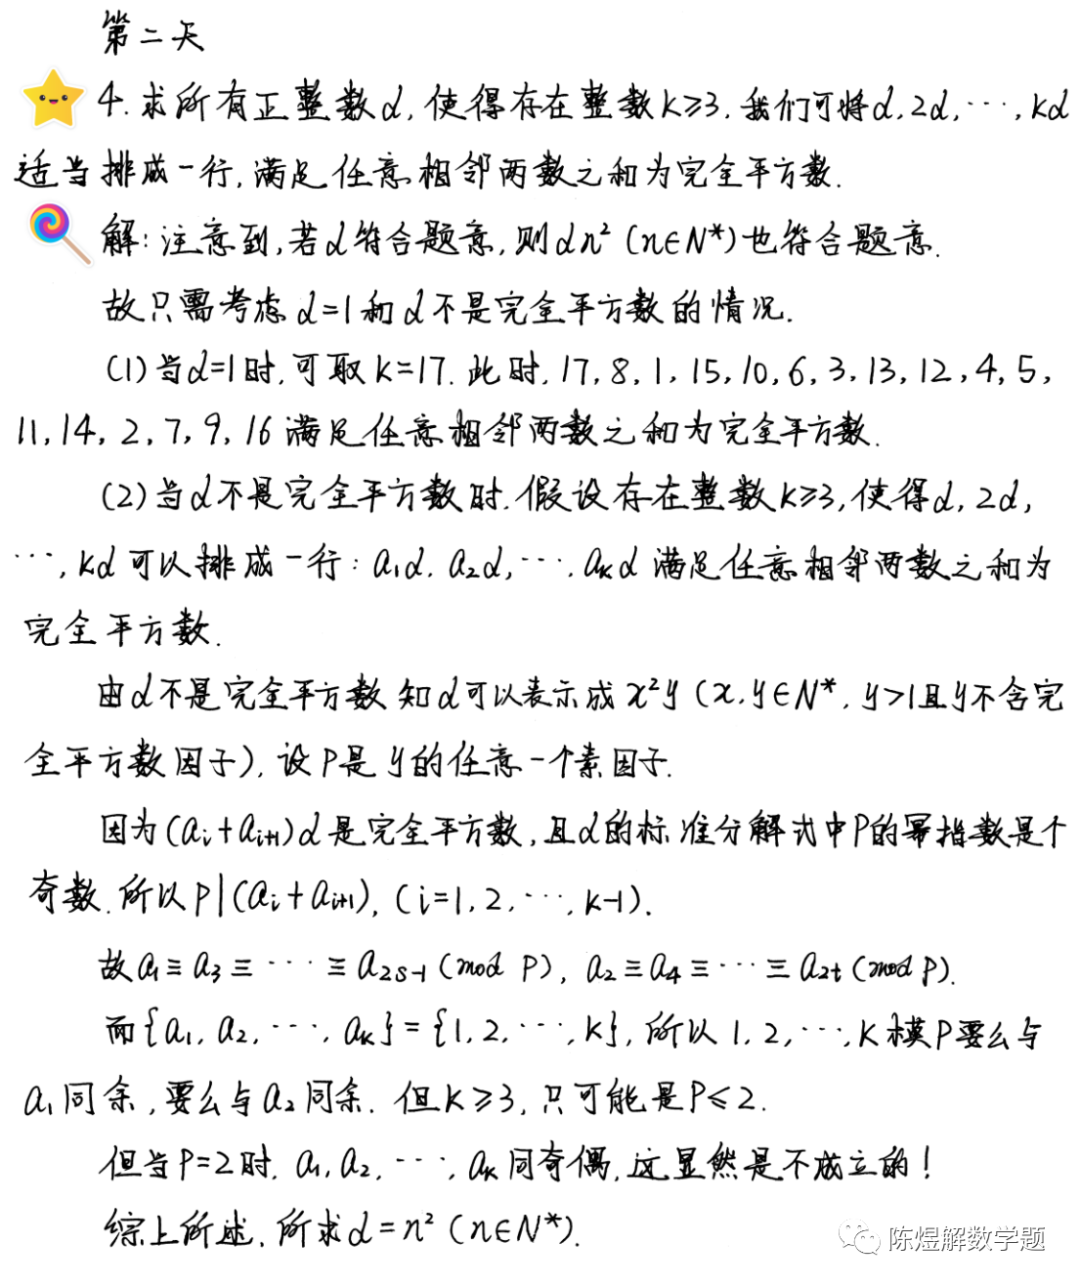 第二天
4.求所有正整数d,使得存在整数k≥3,我们可将d,2d,…,kd
适当排成一行,满足任意相邻两数之和为完全平方数.
解:注意到,若d符合题意,则dn²(n∈N*)也符合题意.
故只需考虑d=1和d不是完全平方数的情况.
(1)当d=1时,可取k=17.此时,17,8,1,15,10,6,3,13,12,4,5,
11,14,2,7,9,16满足任意相邻两数之和为完全平方数.
(2)当d不是完全平方数时,假设存在整数k≥3,使得d,2d,
…,kd可以排成一行:a₁d,a₂d,…,aₖd满足任意相邻两数之和为
完全平方数.
由d不是完全平方数知d可以表示成x²y(x,y∈N*,y>1且y不含完
全平方数因子),设p是y的任意一个素因子.
因为(aᵢ+aᵢ₊₁)d是完全平方数,且d的标准分解式中p的幂指数是个
奇数,所以p|(aᵢ+aᵢ₊₁),(i=1,2,…,k-1).
故a₁≡a₃≡…≡a₂ₛ₋₁(mod p),a₂≡a₄≡…≡a₂ₜ(mod p).
而{a₁,a₂,…,aₖ}={1,2,…,k},所以1,2,…,k模p要么与
a₁同余,要么与a₂同余.但k≥3,只可能是p≤2.
但当p=2时,a₁,a₂,…,aₖ同奇偶,这显然是不成立的!
综上所述,所求d=n²(n∈N*).
陈煜解数学题